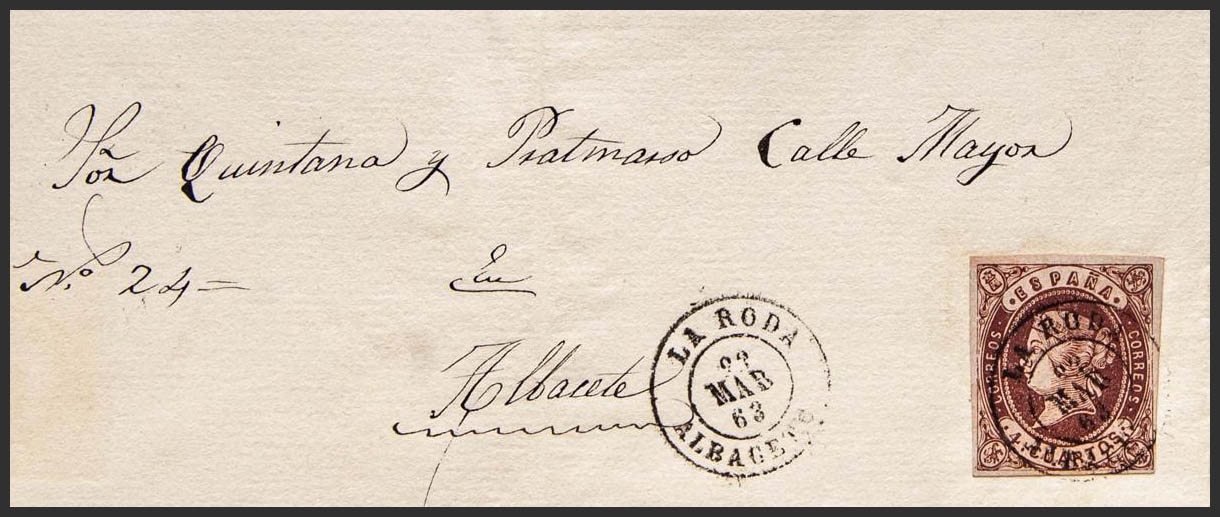 Sor Quintana y Pratmarso Calle Mayor
Nº 24 = En
Albacete
LA RODA
22
MAR
63
ALBACETE
· ESPAÑA ·
CORREOS · CORREOS ·
· 4 CUARTOS ·
LA RODA
22
MAR
63